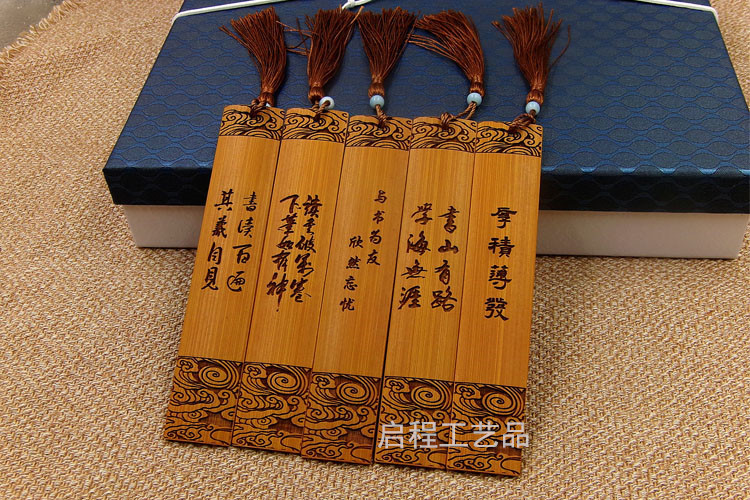 書读百遍
其義自見
读書破萬卷
下筆如有神
与书为友
欣然忘忧
書山有路
学海無涯
厚積薄發
启程工艺品